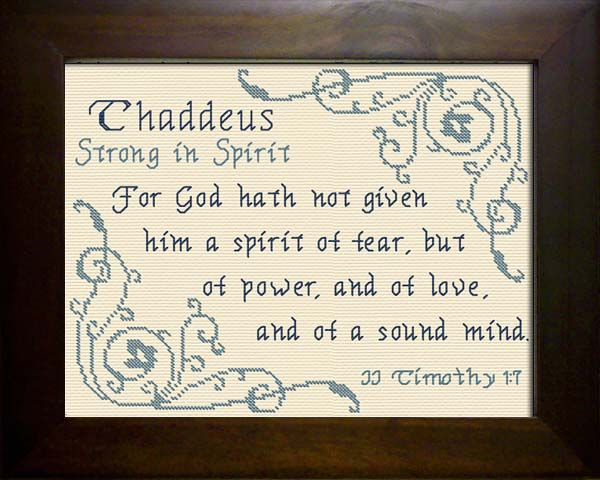 Thaddeus
Strong in Spirit
For God hath not given
him a spirit of fear, but
of power, and of love,
and of a sound mind.
II Timothy 1:7